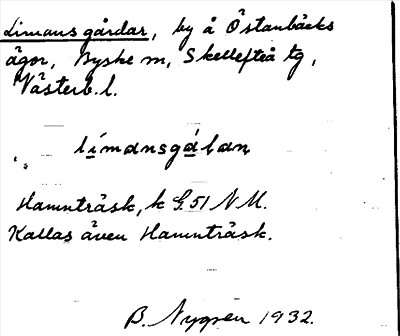 Limansgårdar, by å Östanbäcks
ägor, Byske sn, Skellefteå tg,
Västerb. l.
límansgá̱ḷan
Hamnträsk, k G. 51 N M.
Kallas även Hamnträsk.
B. Nygren 1932.